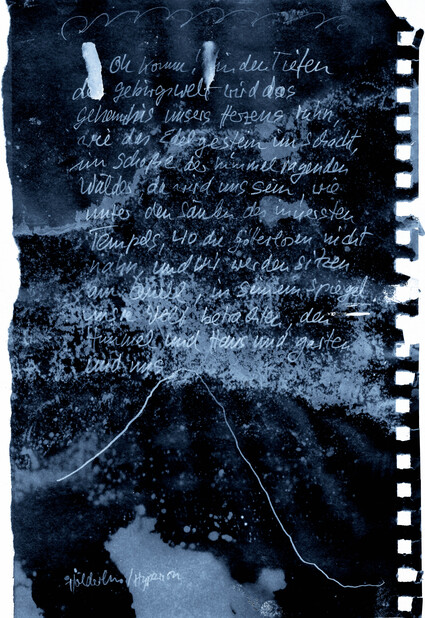 Oh komm, in den Tiefen
der Gebirgswelt wird das
Geheimnis unsers Herzens ruhn,
wie das Edelgestein im Schacht,
im Schoße der himmelragenden
Wälder, da wird uns sein, wie
unter den Säulen des innersten
Tempels, wo die Götterlosen nicht
nahn, und wir werden sitzen
am Quell, in seinem Spiegel
unsre Welt betrachten den
Himmel und Haus und Garten
und uns
Hölderlin/Hyperion